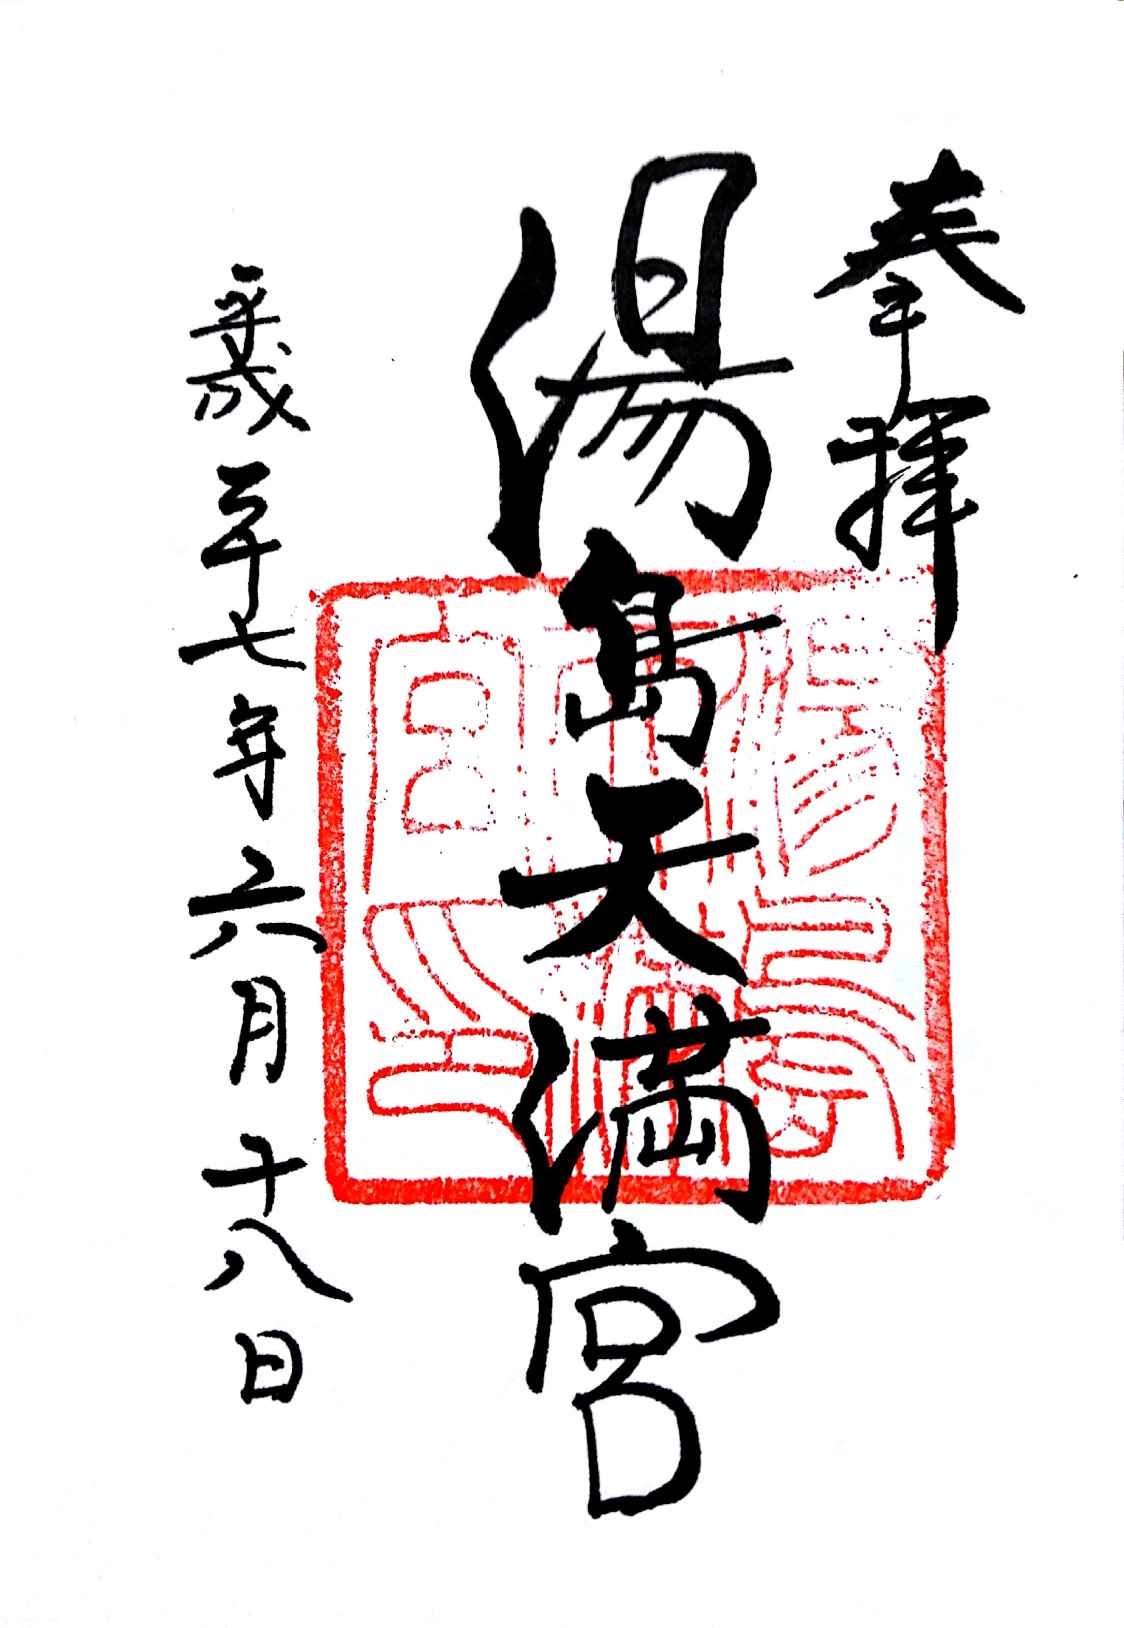 奉拝
湯島天満宮
平成二十七年六月十八日
湯島
天満
宮印